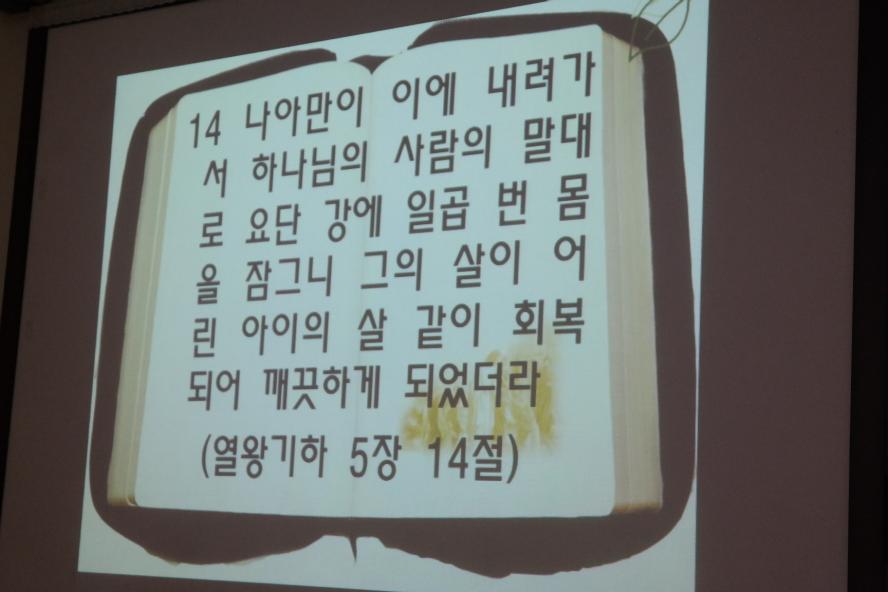 14 나아만이 이에 내려가
서 하나님의 사람의 말대
로 요단 강에 일곱 번 몸
을 잠그니 그의 살이 어
린 아이의 살 같이 회복
되어 깨끗하게 되었더라
(열왕기하 5장 14절)